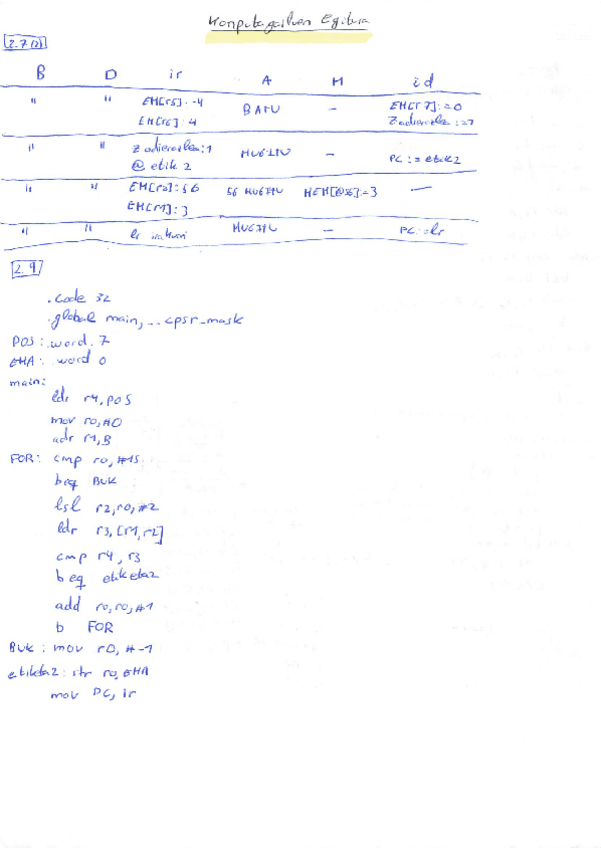 Konputagailuen Egitura
2.7(2)
B D ir A M id
" " EM[r5]: -4 BATU - EM[r7]:=0
EM[r6]: 4 Z adierazlea:=1
" " Z adierazlea:1 MUGITU - PC:=etik2
@ etik 2
" " EM[r0]:56 56 MUGITU MEM[@56]:=3 -
EM[r1]:3
" " lr irakurri MUGITU - PC:=lr
2.9
.code 32
.global main, __cpsr_mask
POS: .word 7
EMA: .word 0
main:
ldr r4, POS
mov r0, #0
adr r1, B
FOR: cmp r0, #15
beq BUK
lsl r2, r0, #2
ldr r3, [r1, r2]
cmp r4, r3
beq etiketa2
add r0, r0, #1
b FOR
BUK: mov r0, #-1
etiketa2: str r0, EMA
mov PC, lr